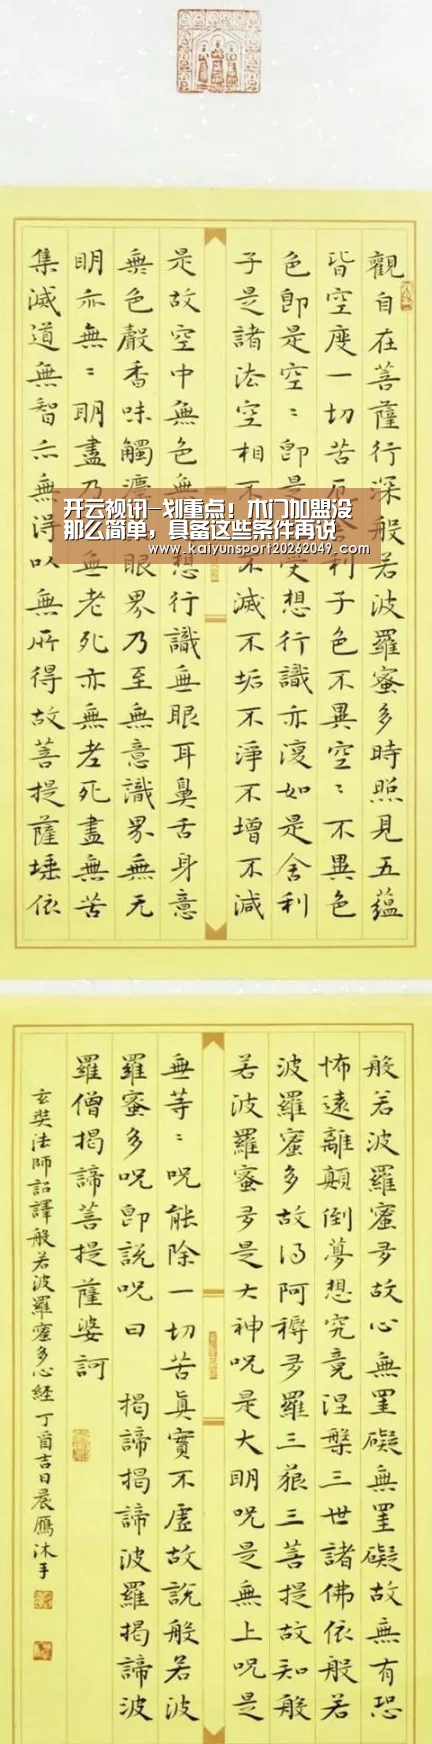 觀自在菩薩行深般若波羅蜜多時照見五蘊
皆空度一切苦厄利子色不異空〻不異色
色即是空〻即是受想行識亦復如是舍利
子是諸法空相不不滅不垢不淨不增不減
是故空中無色無想行識無眼耳鼻舌身意
無色聲香味觸眼界乃至無意識界無无
明亦無〻明盡乃無老死亦無老死盡無苦
集滅道無智亦無得以無所得故菩提薩埵依
开云视讯-划重点！木门加盟没
那么简单，具备这些条件再说
www.kaiyunsport20262049.com
般若波羅蜜多故心無罣礙無罣礙故無有恐
怖遠離顛倒夢想究竟涅槃三世諸佛依般若
波羅蜜多故得阿耨多羅三藐三菩提故知般
若波羅蜜多是大神呪是大明呪是無上呪是
無等〻呪能除一切苦真實不虛故說般若波
羅蜜多呪即說呪曰 揭諦揭諦波羅揭諦波
羅僧揭諦菩提薩婆訶
玄奘法師詔譯般若波羅蜜多心經 丁酉吉日晨鴈沐手